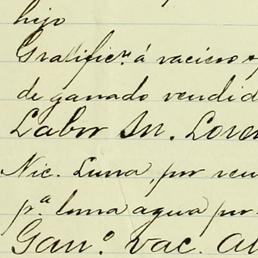 hijo
Gratificn. á vacieros
de ganado vendid
Labor Sn. Loren
Nic. Luna, por ven
pa. loma agua por
Gano. vac. au